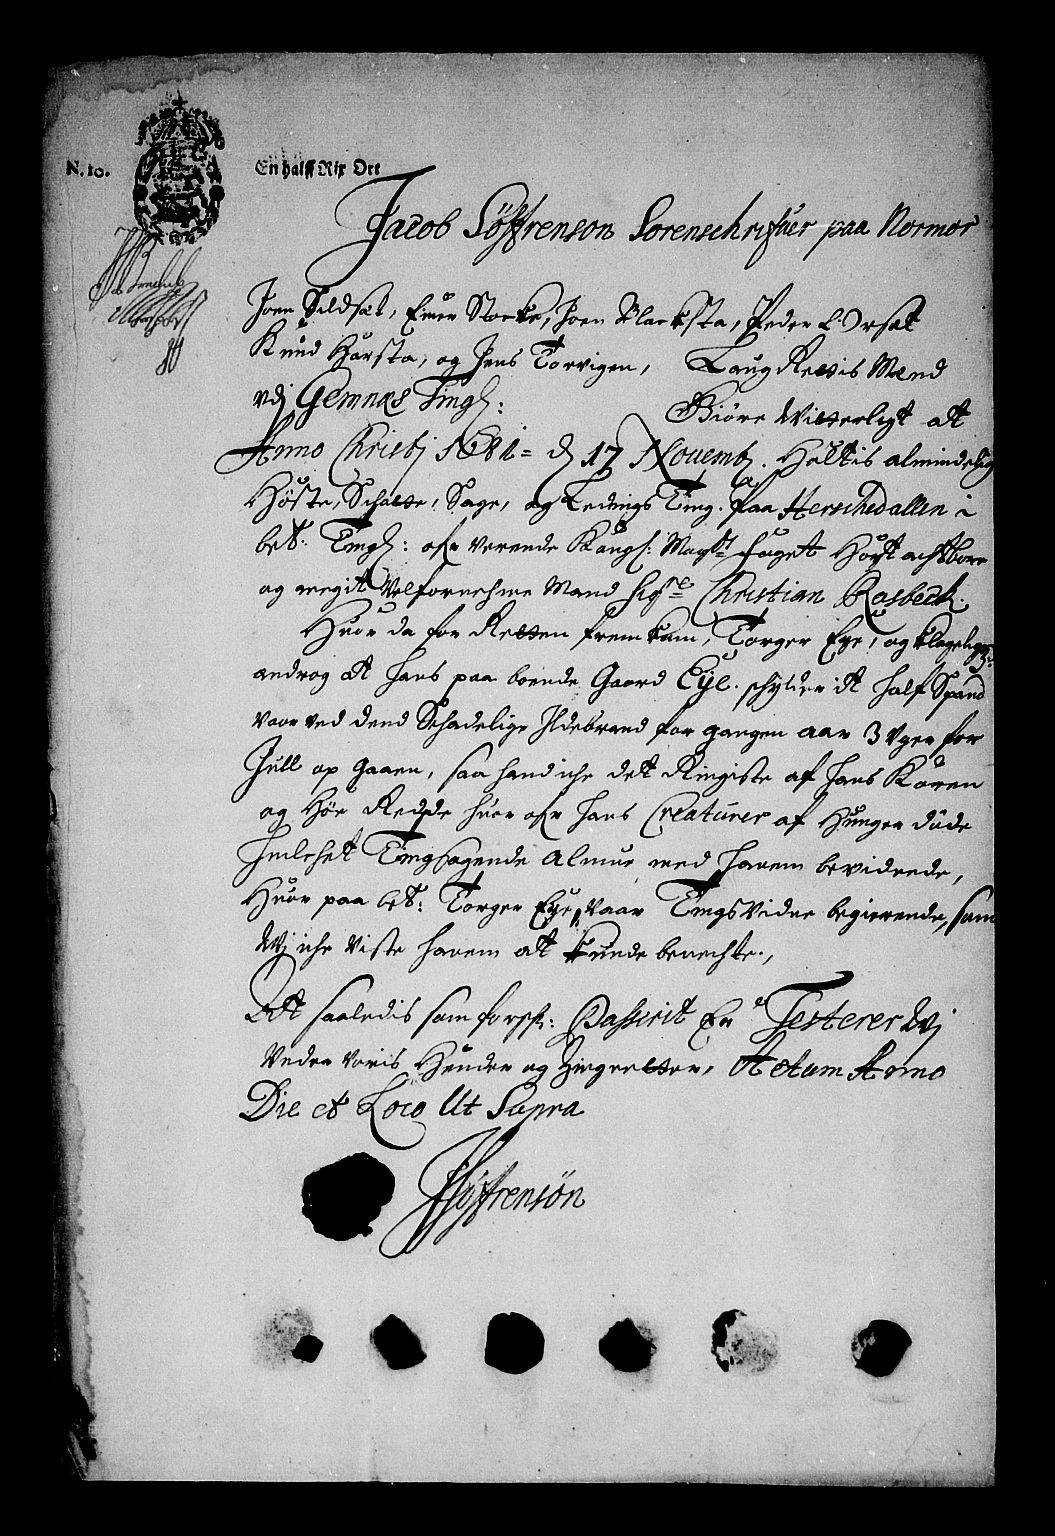 N. 10.
En halff Rix Ort
Jacob Söffrenson Sorenschrifuer paa Normør
Joen Sildset, Einer Stocke, Joen Blacksta, Peder Orset
Knud Harsta, og Jens Torvigen, Laug Rettis Mænd
vdj Gemnæs Tingl:
Giöre Witterligt att
Anno Christj 1681 = d 17 Novembr. Holtis almindelig
Höste, Schatte, Sage, og Lednigs Ting. paa Herschedallen i
bete: Tingl: ofuer verende Kongl: Mayts foget Höyt achtbare
og megit Velfornehme Mand Sigre Christian Rosbech.
Huor da for Retten fremkom, Torger Eye, og klageligen
androg at hans paa boende Gaard Eye. schylder it half Spand
vaar ved dend Schadelige Ildebrand forgangen aar 3 Uger for
Jull op gaaen, saa hand iche det Ringiste af hans Koren
og Höe Redde huor ofuer hans Creaturer af Hunger döde
Huilchet Tingsögende Almue med harem bevidnede,
Huor paa bete: Torger Eye, Vaar Tingsvidne begierende, som
Wj iche viste harem att kunde benechte.,
At saaledis som forsch: Passerit er Testerer Wj
Under voris Hender og Zigneetter, Actum Anno
Die et Loco Ut Supra
JSöffrensön